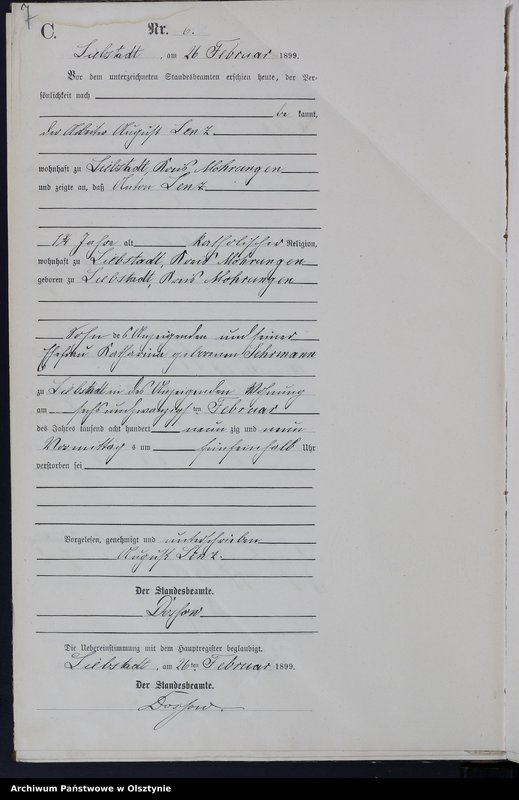 7
C.
Nr. 6.
Liebstadt, am 26 Februar 1899.
Vor dem unterzeichneten Standesbeamten erschien heute, der Per-
sönlichkeit nach
be kannt,
der Arbeiter August Lenz
wohnhaft zu Liebstadt, Kreis Mohrungen
und zeigte an, daß Anton Lenz
14 Jahre alt katholischer Religion,
wohnhaft zu Liebstadt, Kreis Mohrungen
geboren zu Liebstadt, Kreis Mohrungen
Sohn des Anzeigenden und seiner
Ehefrau Katharina geborenen Fehrmann
zu Liebstadt in des Anzeigenden Wohnung
am sechsundzwanzigsten Februar
des Jahres tausend acht hundert neun zig und neun
Vormittags um fünfeinhalb Uhr
verstorben sei
Vorgelesen, genehmigt und unterschrieben
August Lenz.
Der Standesbeamte.
Dossow
Die Uebereinstimmung mit dem Hauptregister beglaubigt.
Liebstadt, am 26ten Februar 1899.
Der Standesbeamte.
Dossow
Archiwum Państwowe w Olsztynie